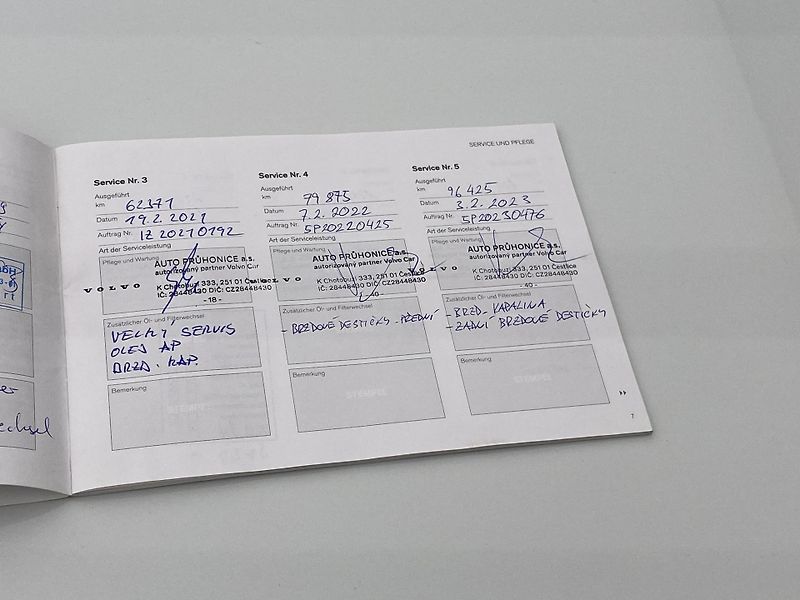 SERVICE UND PFLEGE
Service Nr. 3
Ausgeführt
km 62371
Datum 19.2.2021
Auftrag Nr. IZ20210792
Art der Serviceleistung
Pflege und Wartung
AUTO PRŮHONICE a.s.
autorizovaný partner Volvo Car
VOLVO
K Chotobuzi 333, 251 01 Čestlice
IČ: 28448430 DIČ: CZ28448430
- 18 -
Zusätzlicher Öl- und Filterwechsel
VELKÝ SERVIS
OLEJ AP
BRZD. KAP.
Bemerkung
STEMPEL
Service Nr. 4
Ausgeführt
km 79875
Datum 7.2.2022
Auftrag Nr. SP20220425
Art der Serviceleistung
Pflege und Wartung
AUTO PRŮHONICE a.s.
autorizovaný partner Volvo Car
VOLVO
K Chotobuzi 333, 251 01 Čestlice
IČ: 28448430 DIČ: CZ28448430
- 40 -
Zusätzlicher Öl- und Filterwechsel
- BRZDOVÉ DESTIČKY - PŘEDNÍ
Bemerkung
STEMPEL
Service Nr. 5
Ausgeführt
km 96425
Datum 3.2.2023
Auftrag Nr. SP20230476
Art der Serviceleistung
Pflege und Wartung
AUTO PRŮHONICE a.s.
autorizovaný partner Volvo Car
VOLVO
K Chotobuzi 333, 251 01 Čestlice
IČ: 28448430 DIČ: CZ28448430
- 40 -
Zusätzlicher Öl- und Filterwechsel
- BRZD. KAPALINA
- ZADNÍ BRZDOVÉ DESTIČKY
Bemerkung
STEMPEL
7